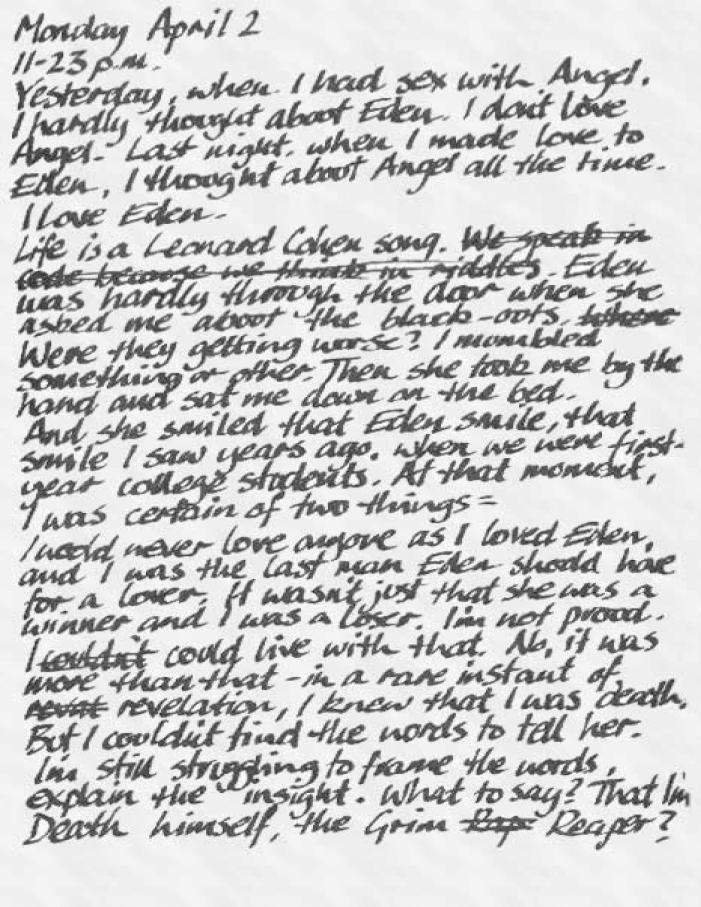 Monday April 2
11-23 p.m.
Yesterday, when I had sex with Angel,
I hardly thought about Eden. I don't love
Angel. Last night, when I made love to
Eden, I thought about Angel all the time.
I love Eden.
Life is a Leonard Cohen song. We speak in
code because we think in riddles. Eden
was hardly through the door when she
asked me about the black-outs. Where
Were they getting worse? I mumbled
something or other. Then she took me by the
hand and sat me down on the bed.
And she smiled that Eden smile, that
smile I saw years ago, when we were first-
year college students. At that moment,
I was certain of two things =
I would never love anyone as I loved Eden,
and I was the last man Eden should have
for a lover. It wasn't just that she was a
winner and I was a loser. I'm not proud.
I couldn't could live with that. No, it was
more than that - in a rare instant of
revat revelation, I knew that I was death.
But I couldn't find the words to tell her.
I'm still struggling to frame the words,
explain the insight. What to say? That I'm
Death himself, the Grim Rap Reaper?